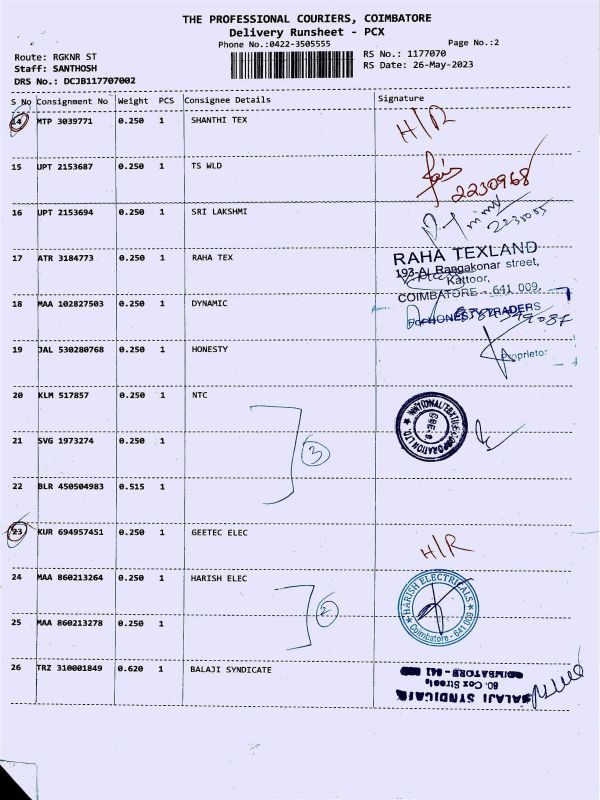 THE PROFESSIONAL COURIERS, COIMBATORE
Delivery Runsheet - PCX
Phone No.:0422-3505555 Page No.:2
Route: RGKNR ST RS No.: 1177070
Staff: SANTHOSH RS Date: 26-May-2023
DRS No.: DCJB117707002
S No Consignment No Weight PCS Consignee Details Signature
14 MTP 3039771 0.250 1 SHANTHI TEX H/R
15 UPT 2153687 0.250 1 TS WLD 2230968
16 UPT 2153694 0.250 1 SRI LAKSHMI
17 ATR 3184773 0.250 1 RAHA TEX RAHA TEXLAND
193-A, Rangakonar street,
Kattoor,
COIMBATORE - 641 009.
18 MAA 102827503 0.250 1 DYNAMIC
For HONESTY TRADERS
19 JAL 530280768 0.250 1 HONESTY Proprietor
20 KLM 517857 0.250 1 NTC NATIONAL TEXTILE CORPORATION LTD
21 SVG 1973274 0.250 1 3
22 BLR 450504983 0.515 1
23 KUR 694957451 0.250 1 GEETEC ELEC H/R
24 MAA 860213264 0.250 1 HARISH ELEC HARISH ELECTRICALS
Coimbatore - 641 009
25 MAA 860213278 0.250 1 2
26 TRZ 310001849 0.620 1 BALAJI SYNDICATE BALAJI SYNDICATE
80, Cox Street,
COIMBATORE - 641